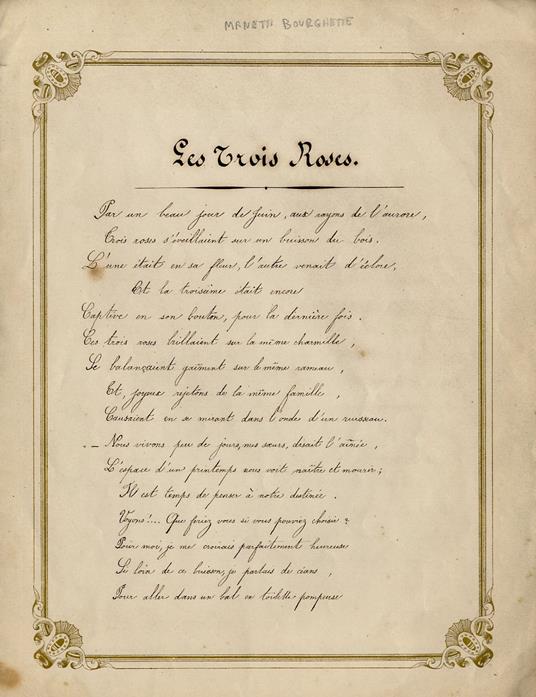 MANETTI BOURGHETTE
Les Trois Roses.
Par un beau jour de Juin, aux rayons de l'aurore,
Trois roses s'éveillaient sur un buisson du bois.
L'une était en sa fleur, l'autre venait d'éclore,
Et la troisième était encore
Captive en son bouton, pour la dernière fois.
Ces trois roses brillaient sur la même charmille,
Se balançaient gaîment sur le même rameau,
Et, joyeux rejetons de la même famille,
Causaient en se mirant dans l'onde d'un ruisseau.
— Nous vivons peu de jours, mes sœurs, disait l'aînée,
L'espace d'un printemps nous voit naître et mourir;
Il est temps de penser à notre destinée.
Voyons!... Que feriez vous si vous pouviez choisir?
Pour moi, je me croirais parfaitement heureuse
Si loin de ce buisson, je partais de céans,
Pour aller dans un bal en toilette pompeuse